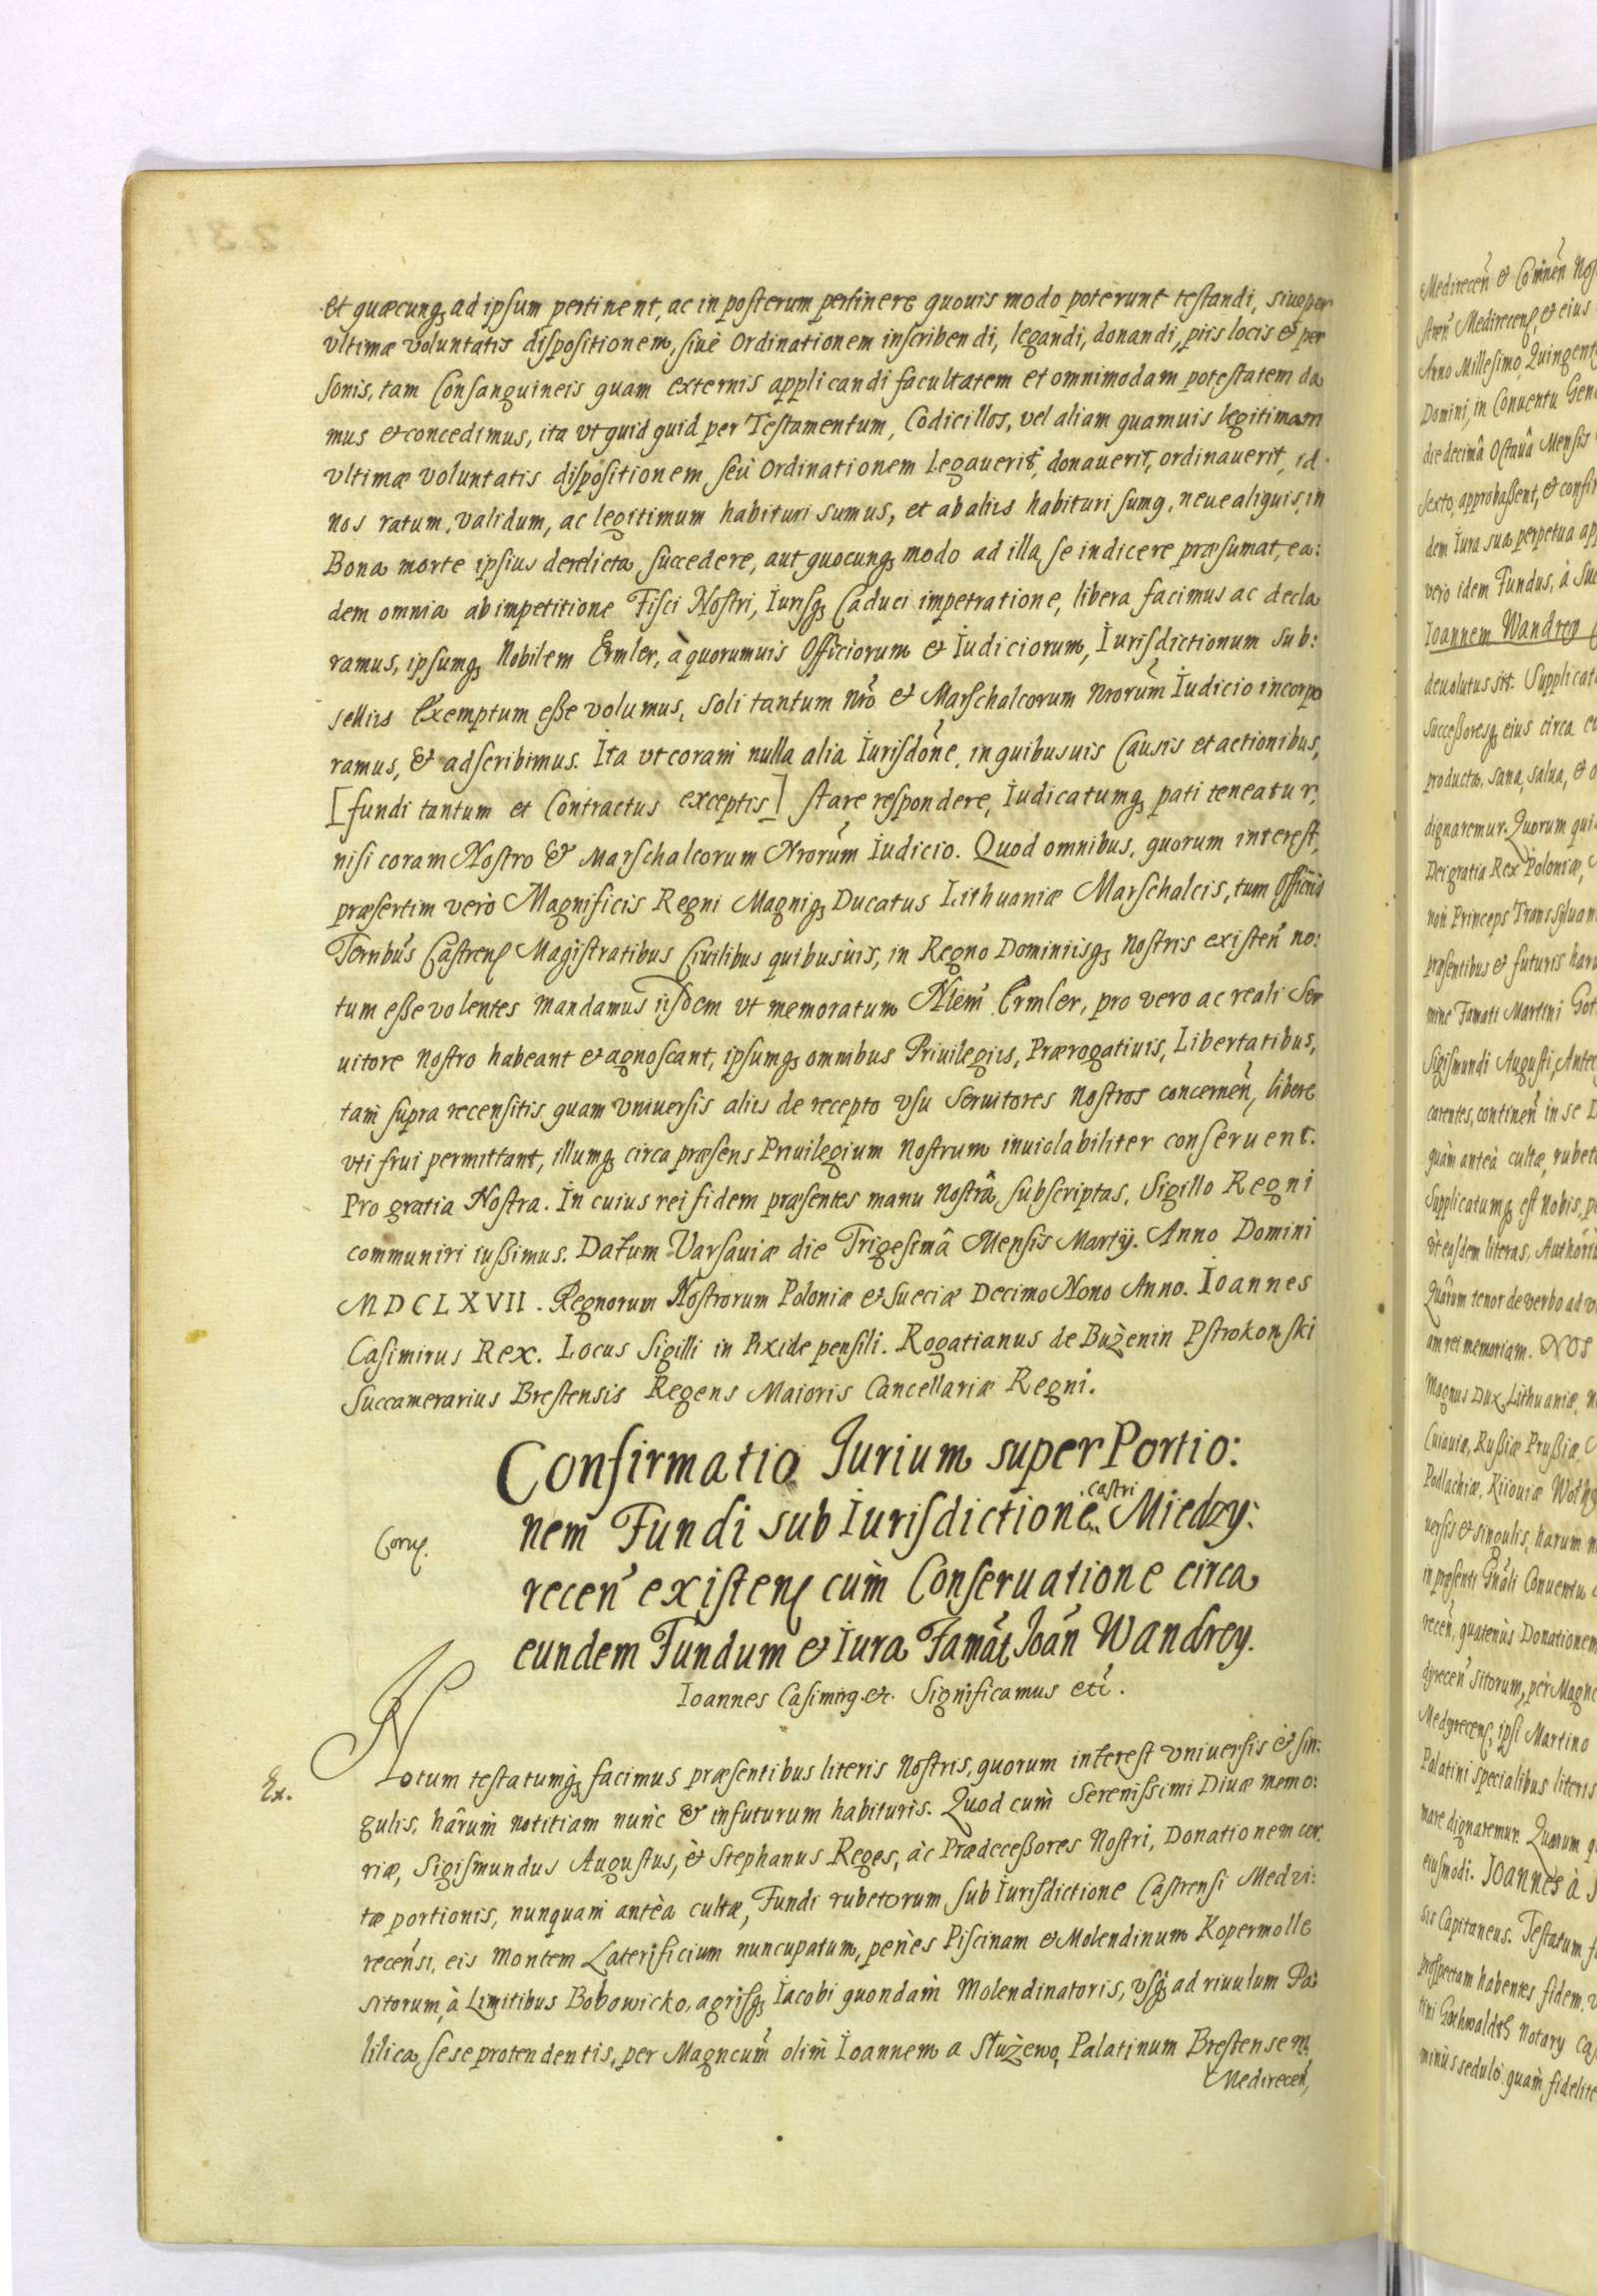 et quæcunq3 ad ipsum pertinent, ac in posterum pertinere quouis modo poterunt testandi, siue per
vltimæ voluntatis dispositionem, siuè Ordinationem inscribendi, legandi, donandi, piis locis et per
sonis, tam Consanguineis quam externis applicandi facultatem et omnimodam potestatem da
mus et concedimus, ita vt quid quid per Testamentum, Codicillos, vel aliam quamuis legitimam
vltimæ voluntatis dispositionem, seù Ordinationem legauerit, donauerit, ordinauerit, id
nos ratum, validum, ac legitimum habituri sumus, et ab aliis habituri sumq, neue aliquis, in
Bona morte ipsius derelicta, succedere, aut quocunq3 modo ad illa, se indicere præsumat, ea:
dem omnia ab impetitione Fisci Nostri, Iurisq3 Caduci impetratione, libera facimus ac decla
ramus, ipsumq3 Nobilem Ermler, à quorumuis Officiorum et Iudiciorum, Iurisdictionum Sub:
selliis Exemptum eße volumus, soli tantum Nro et Marschalcorum Nrorum Iudicio incorpo
ramus, et adscribimus. Ita vt coram nulla alia Iurisdone, in quibusuis Causis et actionibus,
[fundi tantum et Contractus exceptis] stare respondere, Iudicatumq3 pati teneatur,
nisi coram Nostro et Marschalcorum Nrorum Iudicio. Quod omnibus, quorum interest,
præsertim verò Magnificis Regni Magniq3 Ducatus Lithuaniæ Marschalcis, tum Officiis
Terribus Castren Magistratibus Ciuilibus quibusuis, in Regno Dominiisq3 Nostris existen no:
tum eße volentes mandamus iisdem vt memoratum Nlem Ermler, pro vero ac reali Ser
uitore Nostro habeant et agnoscant, ipsumq3 omnibus Priuilegiis, Prærogatiuis, Libertatibus,
tam supra recensitis, quam vniuersis aliis de recepto vsu Seruitores Nostros concernen, libere
vti frui permittant, illumq3 circa præsens Priuilegium Nostrum inuiolabiliter conseruent.
Pro gratia Nostra. In cuius rei fidem præsentes manu Nostrâ subscriptas, Sigillo Regni
communiri iußimus. Datum Varsauiæ die Trigesimâ Mensis Martij. Anno Domini
MDCLXVII. Regnorum Nostrorum Poloniæ et Sueciæ Decimo Nono Anno. Ioannes
Casimirus Rex. Locus Sigilli in Pixide pensili. Rogatianus de Bużenin Pstrokonski
Succamerarius Brestensis Regens Maioris Cancellariæ Regni.
Confirmatio Iurium super Portio:
nem Fundi sub Iurisdictione Castri Miedzy:
Corr.
recen existen cùm Conseruatione circa
eundem Fundum et Iura Famat Ioan Wandrey.
Ioannes Casimirq. et. Significamus etc.
Ex.
Notum testatumq3 facimus præsentibus literis Nostris, quorum interest vniuersis et sin:
gulis, harum notitiam nunc et in futurum habituris. Quod cùm Serenissimi Diuæ memo:
riæ, Sigismundus Augustus, et Stephanus Reges, àc Prædeceßores Nostri, Donationem cer
tæ portionis, nunquam anteà cultæ, Fundi rubetorum sub Iurisdictione Castrensi Medzi:
recensi, eis Montem Laterificium nuncupatum, penès Piscinam et Molendinum Kopermolle
sitorum, à Limitibus Bobowicko, agrisq3 Iacobi quondam Molendinatoris, vsq3 ad riuulum Pa:
lilica, sese protendentis, per Magncum olim Ioannem a Służewo, Palatinum Brestensem,
Medirecen,
Medirecen et Comen Nos
Medirecen, et eius
Anno Millesimo, Quingent
Domini, in Conuentu Gen
die decimâ Octauâ Mensis
sexto, approbaßent, et confir
dem Iura sua perpetua ap
vero idem Fundus, à Suc
Ioannem Wandrey
deuolutus sit. Supplicat
Succeßoresq3 eius circa e
producta, sana, salua, et o
dignaremur. Quorum qui
Dei gratia Rex Poloniæ,
non Princeps Transsyluan
præsentibus et futuris haru
mine Famati Martini Got
Sigismundi Augusti, Antec
carentes, continen in se D
quàm anteà cultæ, rubet
Supplicatumq3 est Nobis, p
vt easdem literas, Authori
Quarum tenor de verbo ad v
am rei memoriam. NOS
Magnus Dux Lithuaniæ,
Cuiauiæ, Rußiæ Prußiæ
Podlachiæ, Kiiouiæ Wolhy
uersis et singulis, harum n
in præsenti Gnali Conuentu
recen, quatenùs Donationem
dzyrecen sitorum, pèr Magnc
Medzyrecens, ipsi Martino
Palatini specialibus literis
mare dignaremur. Quarum q
eiusmodi. IOANNES à S
sis Capitaneus. Testatum f
prospectam habentes fidem, v
tini Gothwaldth Notary Cas
minùs sedulò quàm fidelite